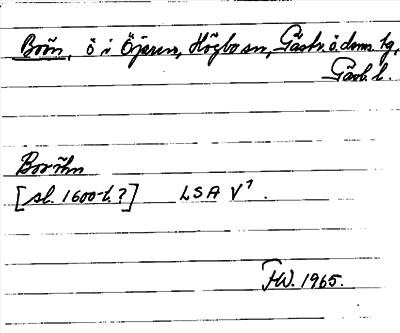 Borön, ö i Öjaren, Högbo sn, Gästr. ö. dms. tg,
Gävb. l.
Boröhn
[sl. 1600-t. ?] LSA V⁷.
HW. 1965.